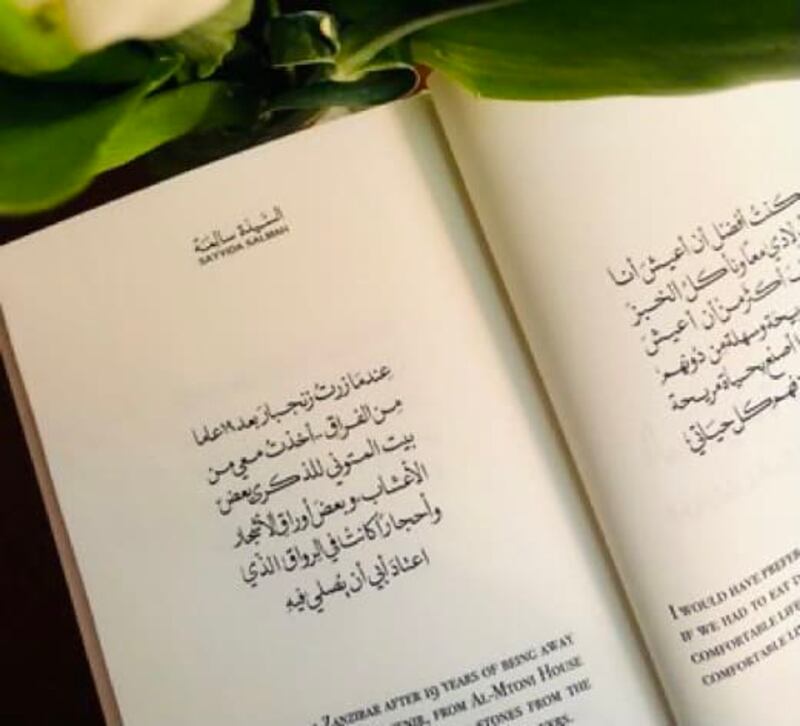 السَّيِّدَة سَالِمَة
SAYYIDA SALMAH
عِندمَا زرتُ زنجبار بعد ١٩ عاما
مِن الفراق.. أخذتُ معي من
بيت المتوني للذكرى بعضَ
الأعشاب، وبعضَ أوراق الأشجار
وأحجارًا كانتْ في الرواق الذي
اعتادَ أبي أن يُصلي فيهِ
ZANZIBAR AFTER 19 YEARS OF BEING AWAY
FROM AL-MTONI HOUSE
STONES FROM THE
كنتُ أفضل أن أعيشَ أنا
معًا ونأكلُ الخبزَ
أكثرَ من أن أعيشَ
وسهلة من دونهم
أصنع بحياة مريحة
كل حياتي
I WOULD HAVE
IF WE HAD TO EAT
COMFORTABLE LIFE
COMFORTABLE